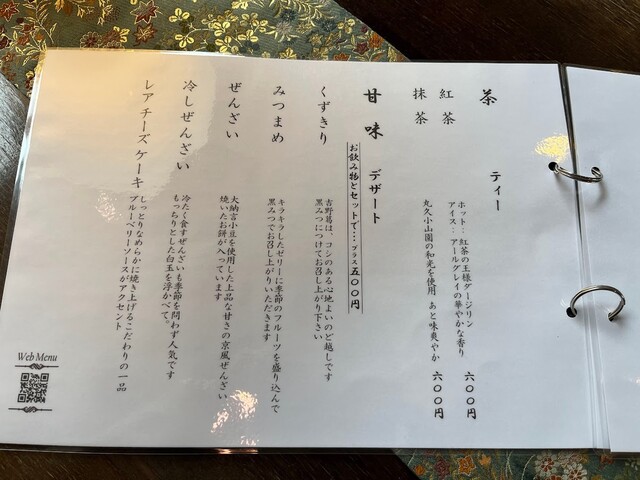 茶 ティー
紅茶
ホット：紅茶の王様ダージリン
アイス：アールグレイの華やかな香り 六〇〇円
抹茶
丸久小山園の和光を使用 あと味爽やか 六〇〇円
甘味 デザート
お飲み物とセットで…プラス五〇〇円
くずきり
吉野葛は、コシのある心地よいのど越しです
黒みつにつけてお召し上がり下さい
みつまめ
キラキラしたゼリーに季節のフルーツを盛り込んで
黒みつでお召し上がりいただきます
ぜんざい
大納言小豆を使用した上品な甘さの京風ぜんざい
焼いたお餅が入っています
冷しぜんざい
冷たく食すぜんざいも季節を問わず人気です
もっちりとした白玉を浮かべて。
レアチーズケーキ
しっとりなめらかに焼き上げるこだわりの一品
ブルーベリーソースがアクセント
Web Menu